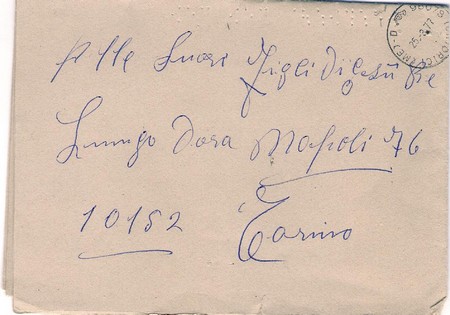 Alle Suori Figli Di Gesù Re
Lungo Dora Napoli 76
10152 Torino
25.2.77